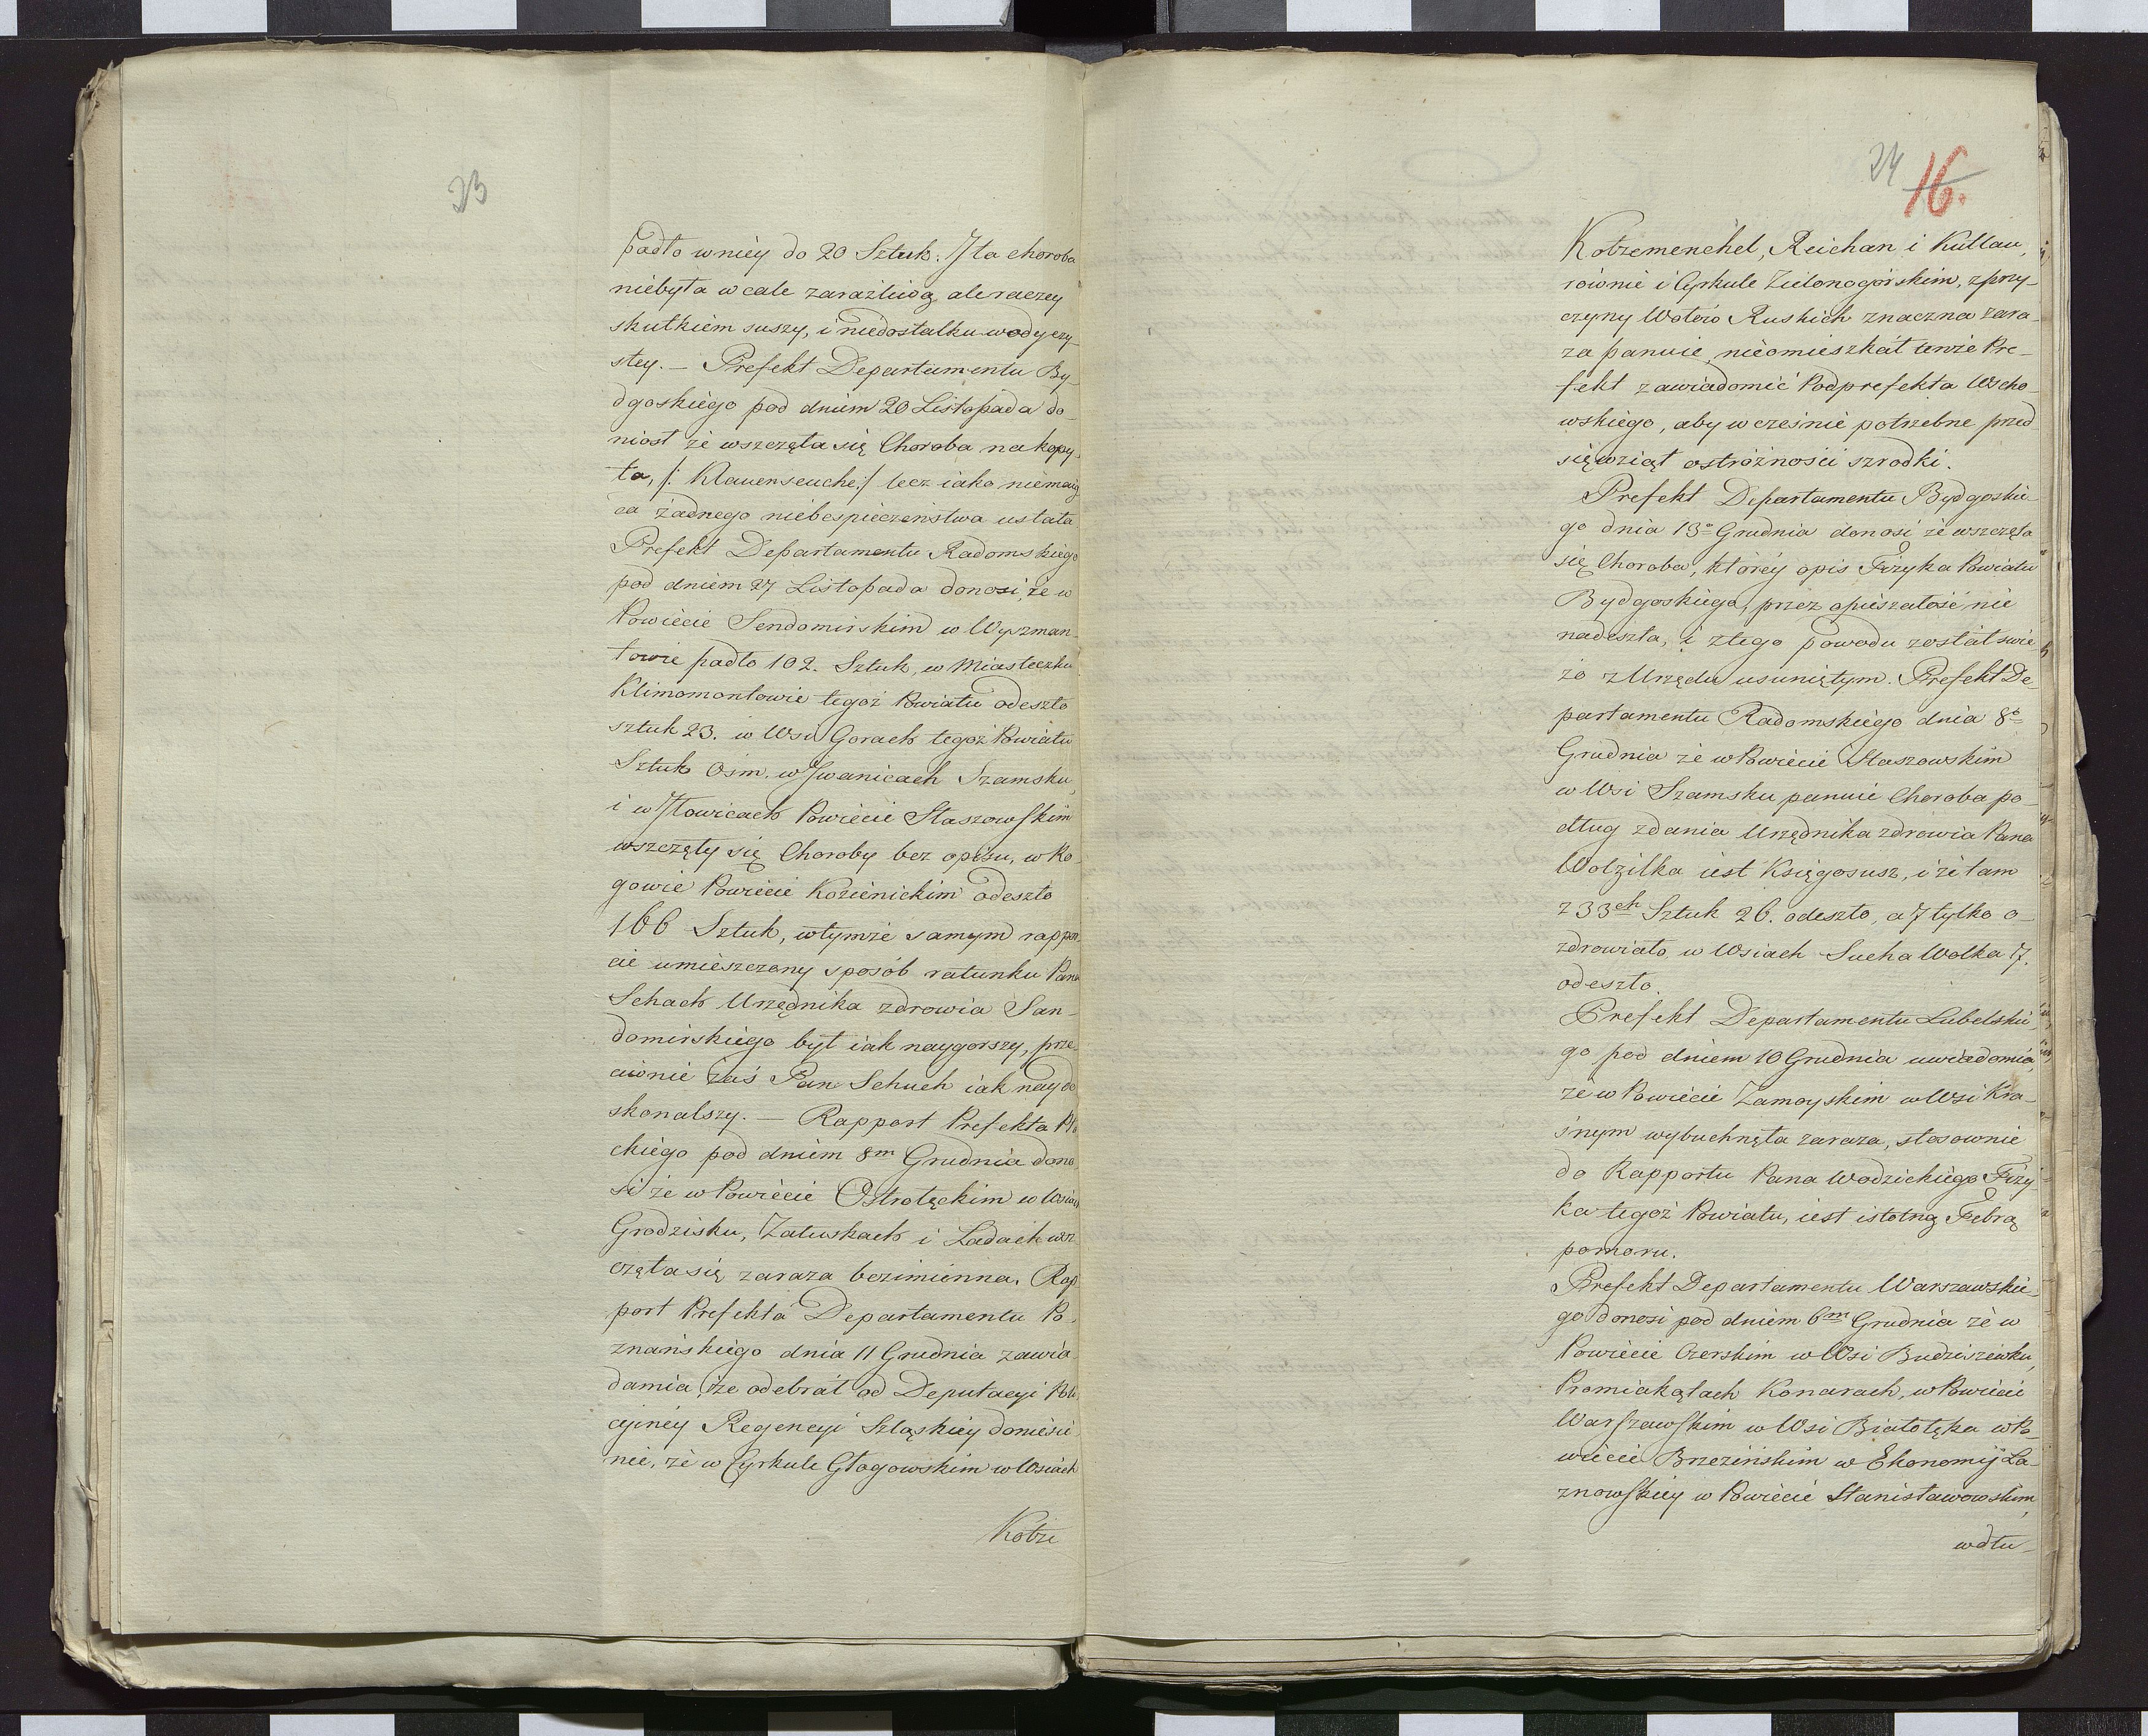 23
padło w niéy do 20 Sztuk. I ta choroba
niebyła wcale zaraźliwą, ale raczey
skutkiem suszy, i niedostatku wody czy-
stey. – Prefekt Departamentu By-
dgoskiego pod dniem 20 Listopada do-
niosł że wszczęła się Choroba na kopy-
ta, /: Klauenseuche :/ lecz iako niemaią-
ca żadnego niebespieczeństwa ustała
Prefekt Departamentu Radomskiego
pod dniem 27 Listopada donosi, że w
Powiecie Sendomirskim w Wyszman-
towie padło 102. Sztuk, w Miasteczku
Klimomontowie tegoż Powiatu odeszło
sztuk 23. w Wsi Gorach tegoż Powiatu
Sztuk Ośm. w Iwanicach Szamsku,
i w Iłowicach Powiecie Staszowskim
wszczęły się Choroby bez opisu, w Ro-
gowie Powiecie Kozienickim odeszło
166 Sztuk, w tymże samym rappor-
cie umieszczony sposób ratunku Pana
Schach Urzędnika zdrowia San-
domirskiego był iak naygorszy, prze-
ciwnie zaś Pan Schuch iak naydo
skonalszy. – Rapport Prefekta Pło
ckiego pod dniem 8m Grudnia dono
si że w Powiecie Ostrołęckim w Wsiach
Grodzisku, Załuskach i Ladach wsz
częła się zaraza bezimienna. Rap
port Prefekta Departamentu Po-
znańskiego dnia 11 Grudnia zawia
damia, że odebrał od Deputacyi Poli
cyinéy Regencyi Szląskiéy doniesie
nie, że w Cyrkule Głogowskim w Wsiach
Kotze
24 16.
Kotzemenchel, Reichan i Kuttau,
rownie i Cyrkule Zielonogórskim, z przy-
czyny Wołów Ruskich znaczna zara-
za panuie, nieomieszkał tenże Pre-
fekt zawiadomić Podprefekta Wscho-
wskiego, aby wcześnie potrzebne przed
sięwziął ostróżności szrodki.
Prefekt Departamentu Bydgoskie-
go dnia 13o Grudnia donosi że wszczęła
się Choroba, któréy opis Fizyka Powiatu
Bydgoskiego, przez opieszałość nie
nadeszła, i z tego powodu został świe
żo z Urzędu usuniętym. Prefekt De-
partamentu Radomskiego dnia 8o
Grudnia że w Powiecie Staszowskim
w Wsi Szamsku panuie Choroba po-
dług zdania Urzędnika zdrowia Pana
Wolzilka iest Księgosusz, i że tam
z 33ch Sztuk 26. odeszło, a 7 tylko o-
zdrowiało, w Wsiach Sucha Wolka 17.
odeszło.
Prefekt Departamentu Lubelskie-
go pod dniem 10 Grudnia uwiadomia,
że w Powiecie Zamoyskim w Wsi Kra-
śnym wybuchnęła zaraza, stosownie
do Rapportu Pana Wodzickiego Fizy-
ka tegoż Powiatu, iest istotną Febrą
pomoru.
Prefekt Departamentu Warszawskie-
go donosi pod dniem 6m Grudnia że w
Powiecie Czerskim w Wsi Budziszewku,
Promiakąłach Konarach, w Powiecie
Warszawskim w Wsi Białołęka w Po-
wiecie Brzezińskim w Ekonomij La-
znowskiéy w Powiecie Stanisławowskim,
w dłu-